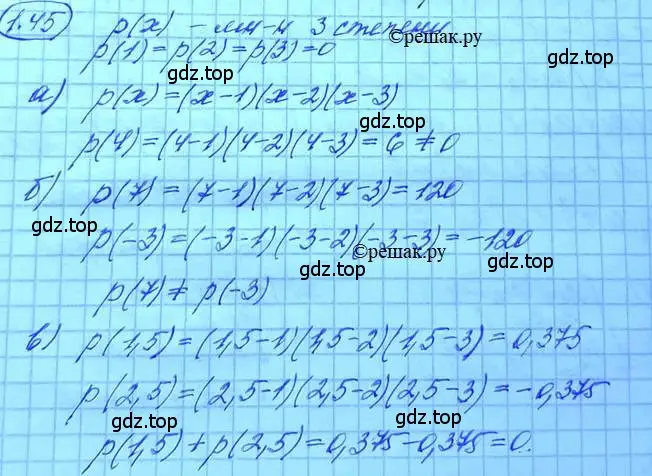 1.45 p(x) - мн-н 3 степени
©решак.ру
p(1)=p(2)=p(3)=0
gdz.top gdz.top
а) p(x)=(x-1)(x-2)(x-3)
gdz.top
p(4)=(4-1)(4-2)(4-3)=6≠0
б) p(7)=(7-1)(7-2)(7-3)=120
gdz.top
p(-3)=(-3-1)(-3-2)(-3-3)=-120
©решак.ру
gdz.top
p(7)≠p(-3)
gdz.top
в) p(1,5)=(1,5-1)(1,5-2)(1,5-3)=0,375
p(2,5)=(2,5-1)(2,5-2)(2,5-3)=-0,375
gdz.top gdz.top
p(1,5)+p(2,5)=0,375-0,375=0.